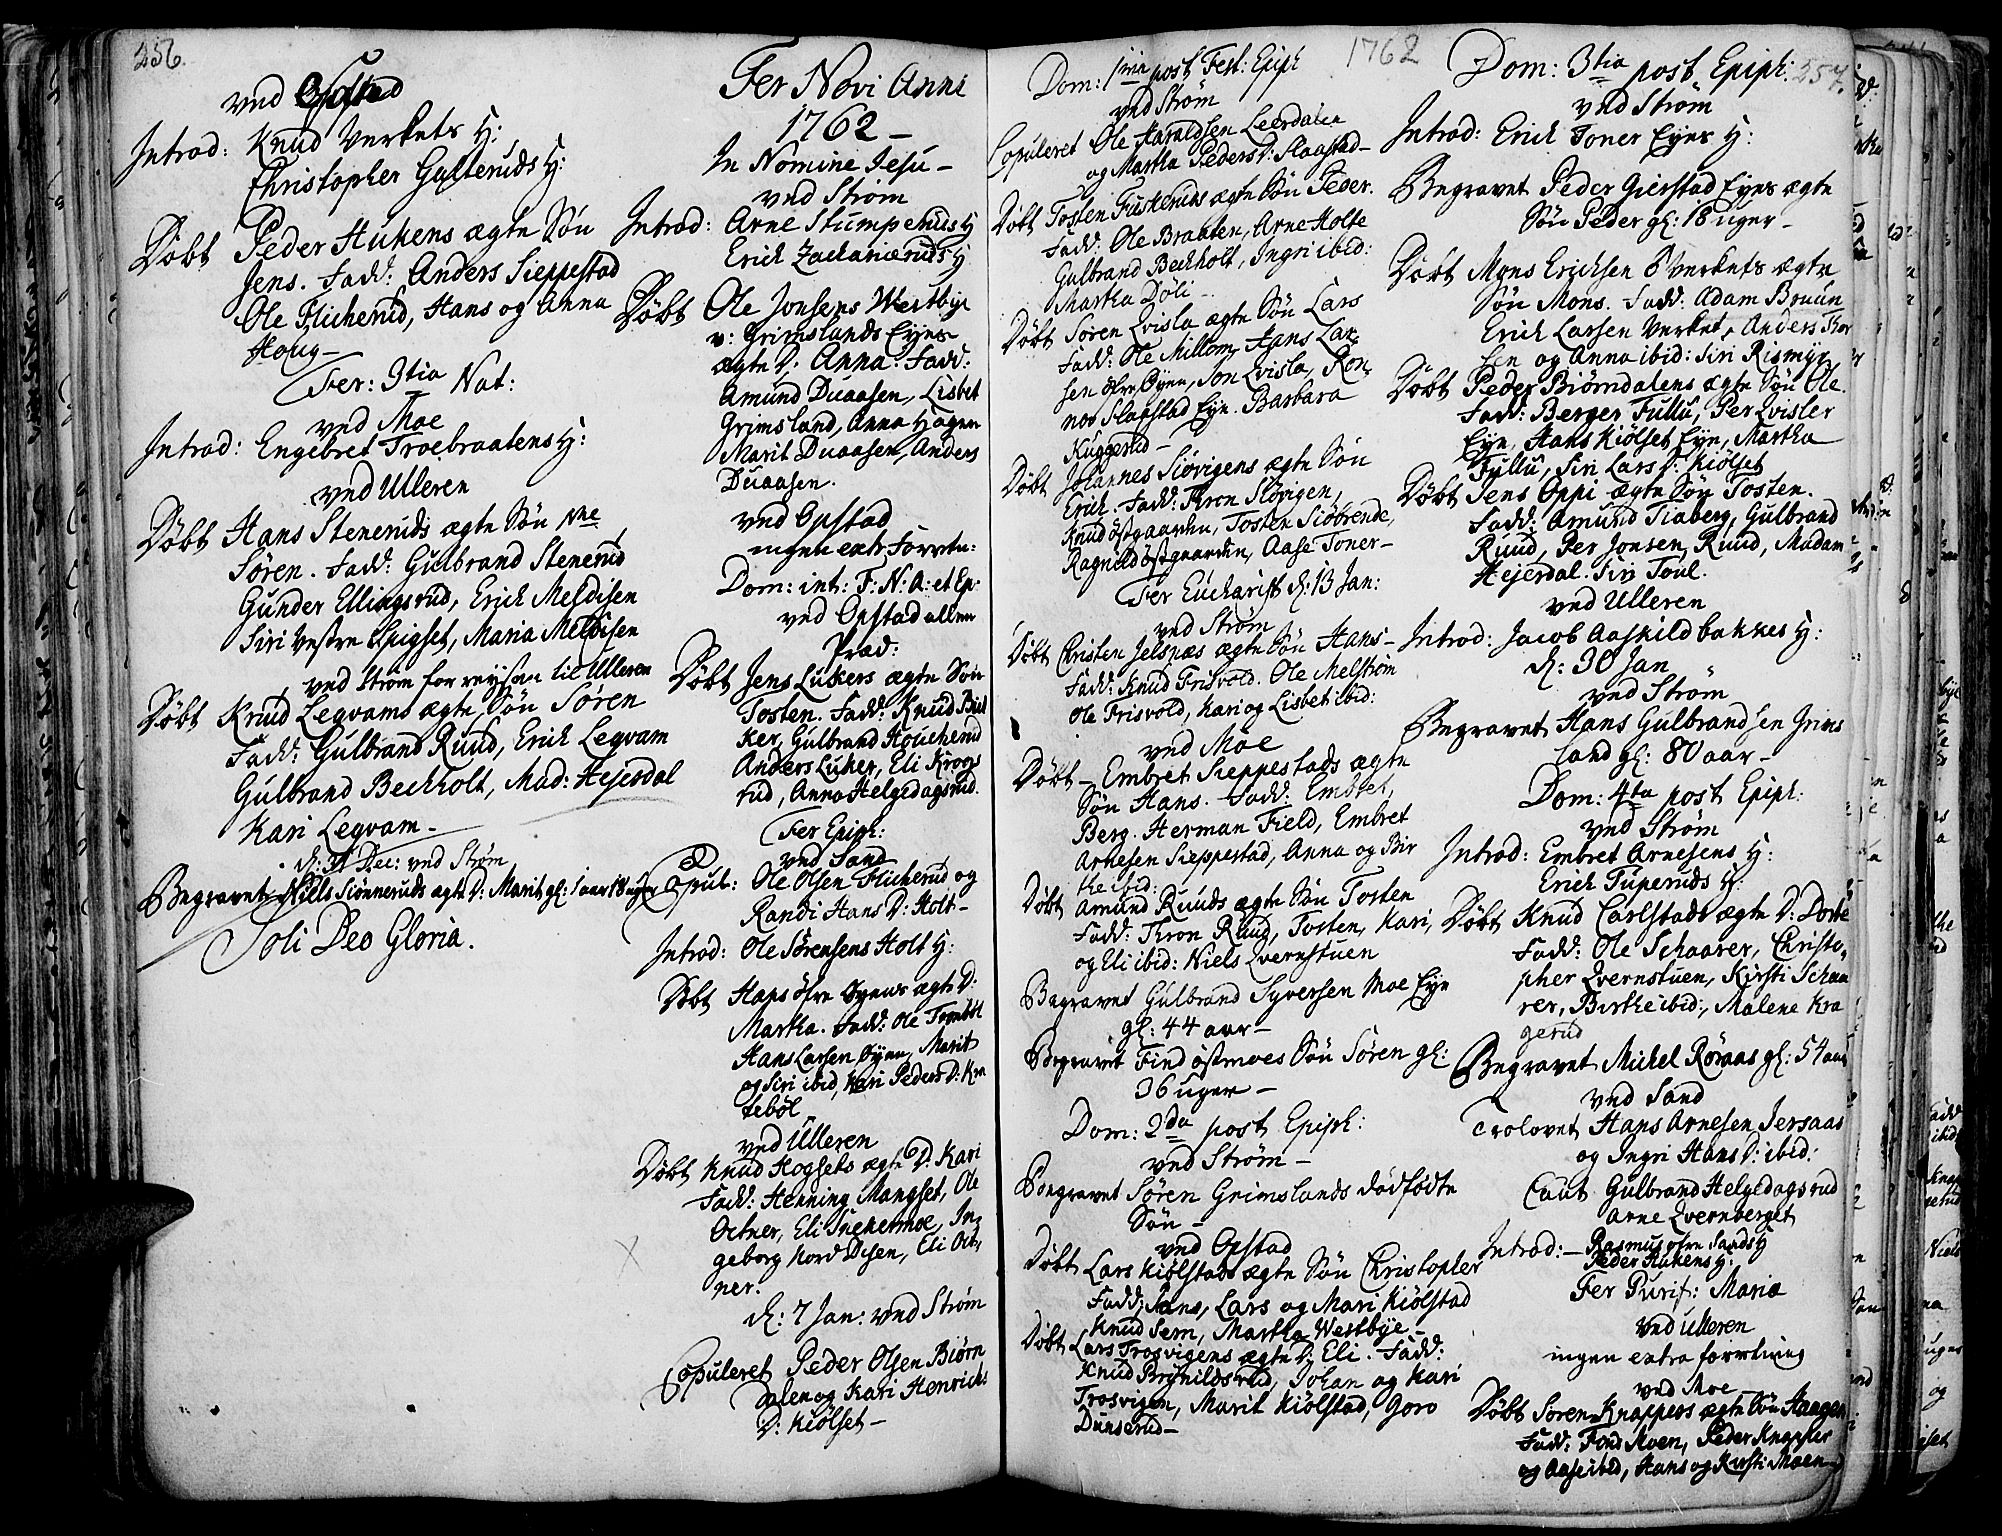 256.
ved Opstad
Introd: Knud Verkets H:
Christopher Galteruds H:
Döbt Peder Hukens ægte Sön
Jens. Fadd: Anders Sieppestad
Ole Flicherud, Hans og Anna
Houg—
Fer: 3tia Nat:
ved Moe
Introd: Engebret Troebraatens H:
ved Ulleren
Döbt Hans Steneruds ægte Sön
Sören. Fadd: Gulbrand Stenerud
Gunder Ellingsrud, Erich Meldisen
Siri Vestre Spigset, Maria Meldisen
ved Ström for reysen til Ulleren
Döbt Knud Legvams ægte Sön Sören
Fadd: Gulbrand Ruud, Erich Legvam
Gulbrand Beckholt, Mad: Hejerdal
Kari Legvam—
d: 31 Dec: ved Ström
Begravet Niels Siönneruds ægte D: Marit gl: 1 aar 18 uger
Soli Deo Gloria.
Fer Novi Anni
1762—
In Nomine Jesu—
ved Ström
Introd: Arne Stumperuds H
Erich Zachariæruds H
Döbt Ole Jonsens Westbye
v: Grimslands Eyes
ægte D: Anna. Fadd:
Amund Duaasen, Lisbet
Grimsland, Anna Hagen
Marit Duaasen, Anders
Duaasen.
ved Opstad
ingen extr: Forretn:
Dom: int: F: N: A: et Ep:
ved Opstad allene
Præd:
Döbt Jens Lukers ægte Sön
Tosten. Fadd: Knud
ker, Gulbrand Houcherud
Anders Luker, Eli Krogs
rud, Anna Helgedagsrud.
Fer Epiph:
ved Sand
Copul: Ole Olsen Flicherud og
Randi Hans D: Holt—
Introd: Ole Sörensens Holt H:
Döbt Hans öfre Öyens ægte D:
Martha. Fadd: Ole
Hans Larsen Öyen, Marit
og Siri ibid, Kari Peders D: Kra
teböl
ved Ulleren
Döbt Knud Hogsets ægte D: Kari
Fadd: Henning Mangset, Ole
Octner, Eli Snekermoe, In,
geborg Nord Disen, Eli Oct,
ner.
d: 7 Jan: ved Ström
Copuleret Peder Olsen Biörn
dalen og Kari Henrichs
D: Kiölset—
1762
Dom: 1ma post Fest: Epiph
ved Ström
Copuleret Ole Haraldsen Leerdalen
og Martha Peders D: Slaastad—
Döbt Tosten Fuskeruds ægte Sön Peder.
Fadd: Ole Braaten, Arne Holte
Gulbrand Beckholt, Ingri ibid:
Martha Döli—
Döbt Sören Qvisla ægte Sön Lars
Fadd: Ole Millom, Hans Lar,
sen öfre Öyen, Jon Qvisla, Ron,
nov Slaastad Eye. Barbara
Kuggerud—
Döbt Johannes Siövigens ægte Sön
Erich. Fadd: Thron Siövigen,
Knud östgaarden, Tosten Siöbrende,
Ragnild östgaarden, Aase Toner—
Fer Eucharist d: 13 Jan:
ved Ström
Döbt Christen Jelsnæs ægte Sön Hans—
Fadd: Knud Frisvold. Ole Melström
Ole Frisvold, Kari og Lisbet ibid:
ved Moe
Döbt— Embret Sieppestads ægte
Sön Hans. Fadd: Embret,
Berg. Herman Field, Embret
Arnesen Sieppestad, Anna og Bir
the ibid:
Döbt Amund Ruuds ægte Sön Tosten
Fadd: Thron Ruud, Tosten, Kari,
og Eli ibid: Niels Qvernstuen
Begravet Gulbrand Syversen Moe Eye
gl: 44 aar—
Begravet Find östmoes Sön Sören gl:
36 uger—
Dom: 2da post Epiph:
ved Ström—
Begravet Sören Grimslands dödfödte
Sön—
ved Opstad
Döbt Lars Kiölstads ægte Sön Christopher
Fadd: Jens, Lars og Mari Kiölstad
Knud Sem, Martha Westbye—
Döbt Lars Trosvigens ægte D: Eli. Fadd:
Knud Brynildsrud, Johan og Kari
Trosvigen, Marit Kiölstad, Goro
Dunserud—
Dom: 3tia post Epiph: 257.
ved Ström
Introd: Erich Toner Eyes H:
Begravet Peder Gierstad Eyes ægte
Sön Peder gl: 18 uger—
Döbt Mons Erichsen Ö Verkets ægte
Sön Mons. Fadd: Adam Bruun
Erich Larsen Verket, Anders Thor
sen og Anna ibid: Siri Rismyr
Döbt Peder Biörndalens ægte Sön Ole.
Fadd: Berger Fullu, Per Qvisler
Eye, Hans Kiölset Eye, Martha
Fullu, Siri Lars D: Kiölset
Döbt Jens Oppi ægte Sön Tosten.
Fadd: Amund Tiaberg, Gulbrand
Ruud, Per Jonsen Ruud, Madam
Hejerdal. Siri Toul.
ved Ulleren
Introd: Jacob Aaskildbakkes H:
d: 30 Jan
ved Ström
Begravet Hans Gulbrandsen Grims
land gl: 80 aar—
Dom: 4ta post Epiph:
ved Ström
Introd: Embret Arnesens H:
Erich Tuperuds H:
Döbt Knud Carlstads ægte D: Dorthe
Fadd: Ole Schaarer, Christo,
pher Qvernstuen, Kirsti Schaa
rer, Birthe ibid:, Malene Kra
gerud
Begravet Michel Röraas gl: 54 aar
ved Sand
Trolovet Hans Arnesen Jersaas
og Ingri Hans D: ibid:
Caut. Gulbrand Helgedagsrud
Arne Qvernberget
Introd:— Rasmus öfre Sands H
Peder Hukens H:
Fer Purif: Mariæ
ved Ulleren
ingen extra forretning
ved Moe
Döbt Sören Knappers ægte Sön Haagen
Fadd: Find Moen, Peder Knapper
og Aase ibid, Hans og Kirsti Moen